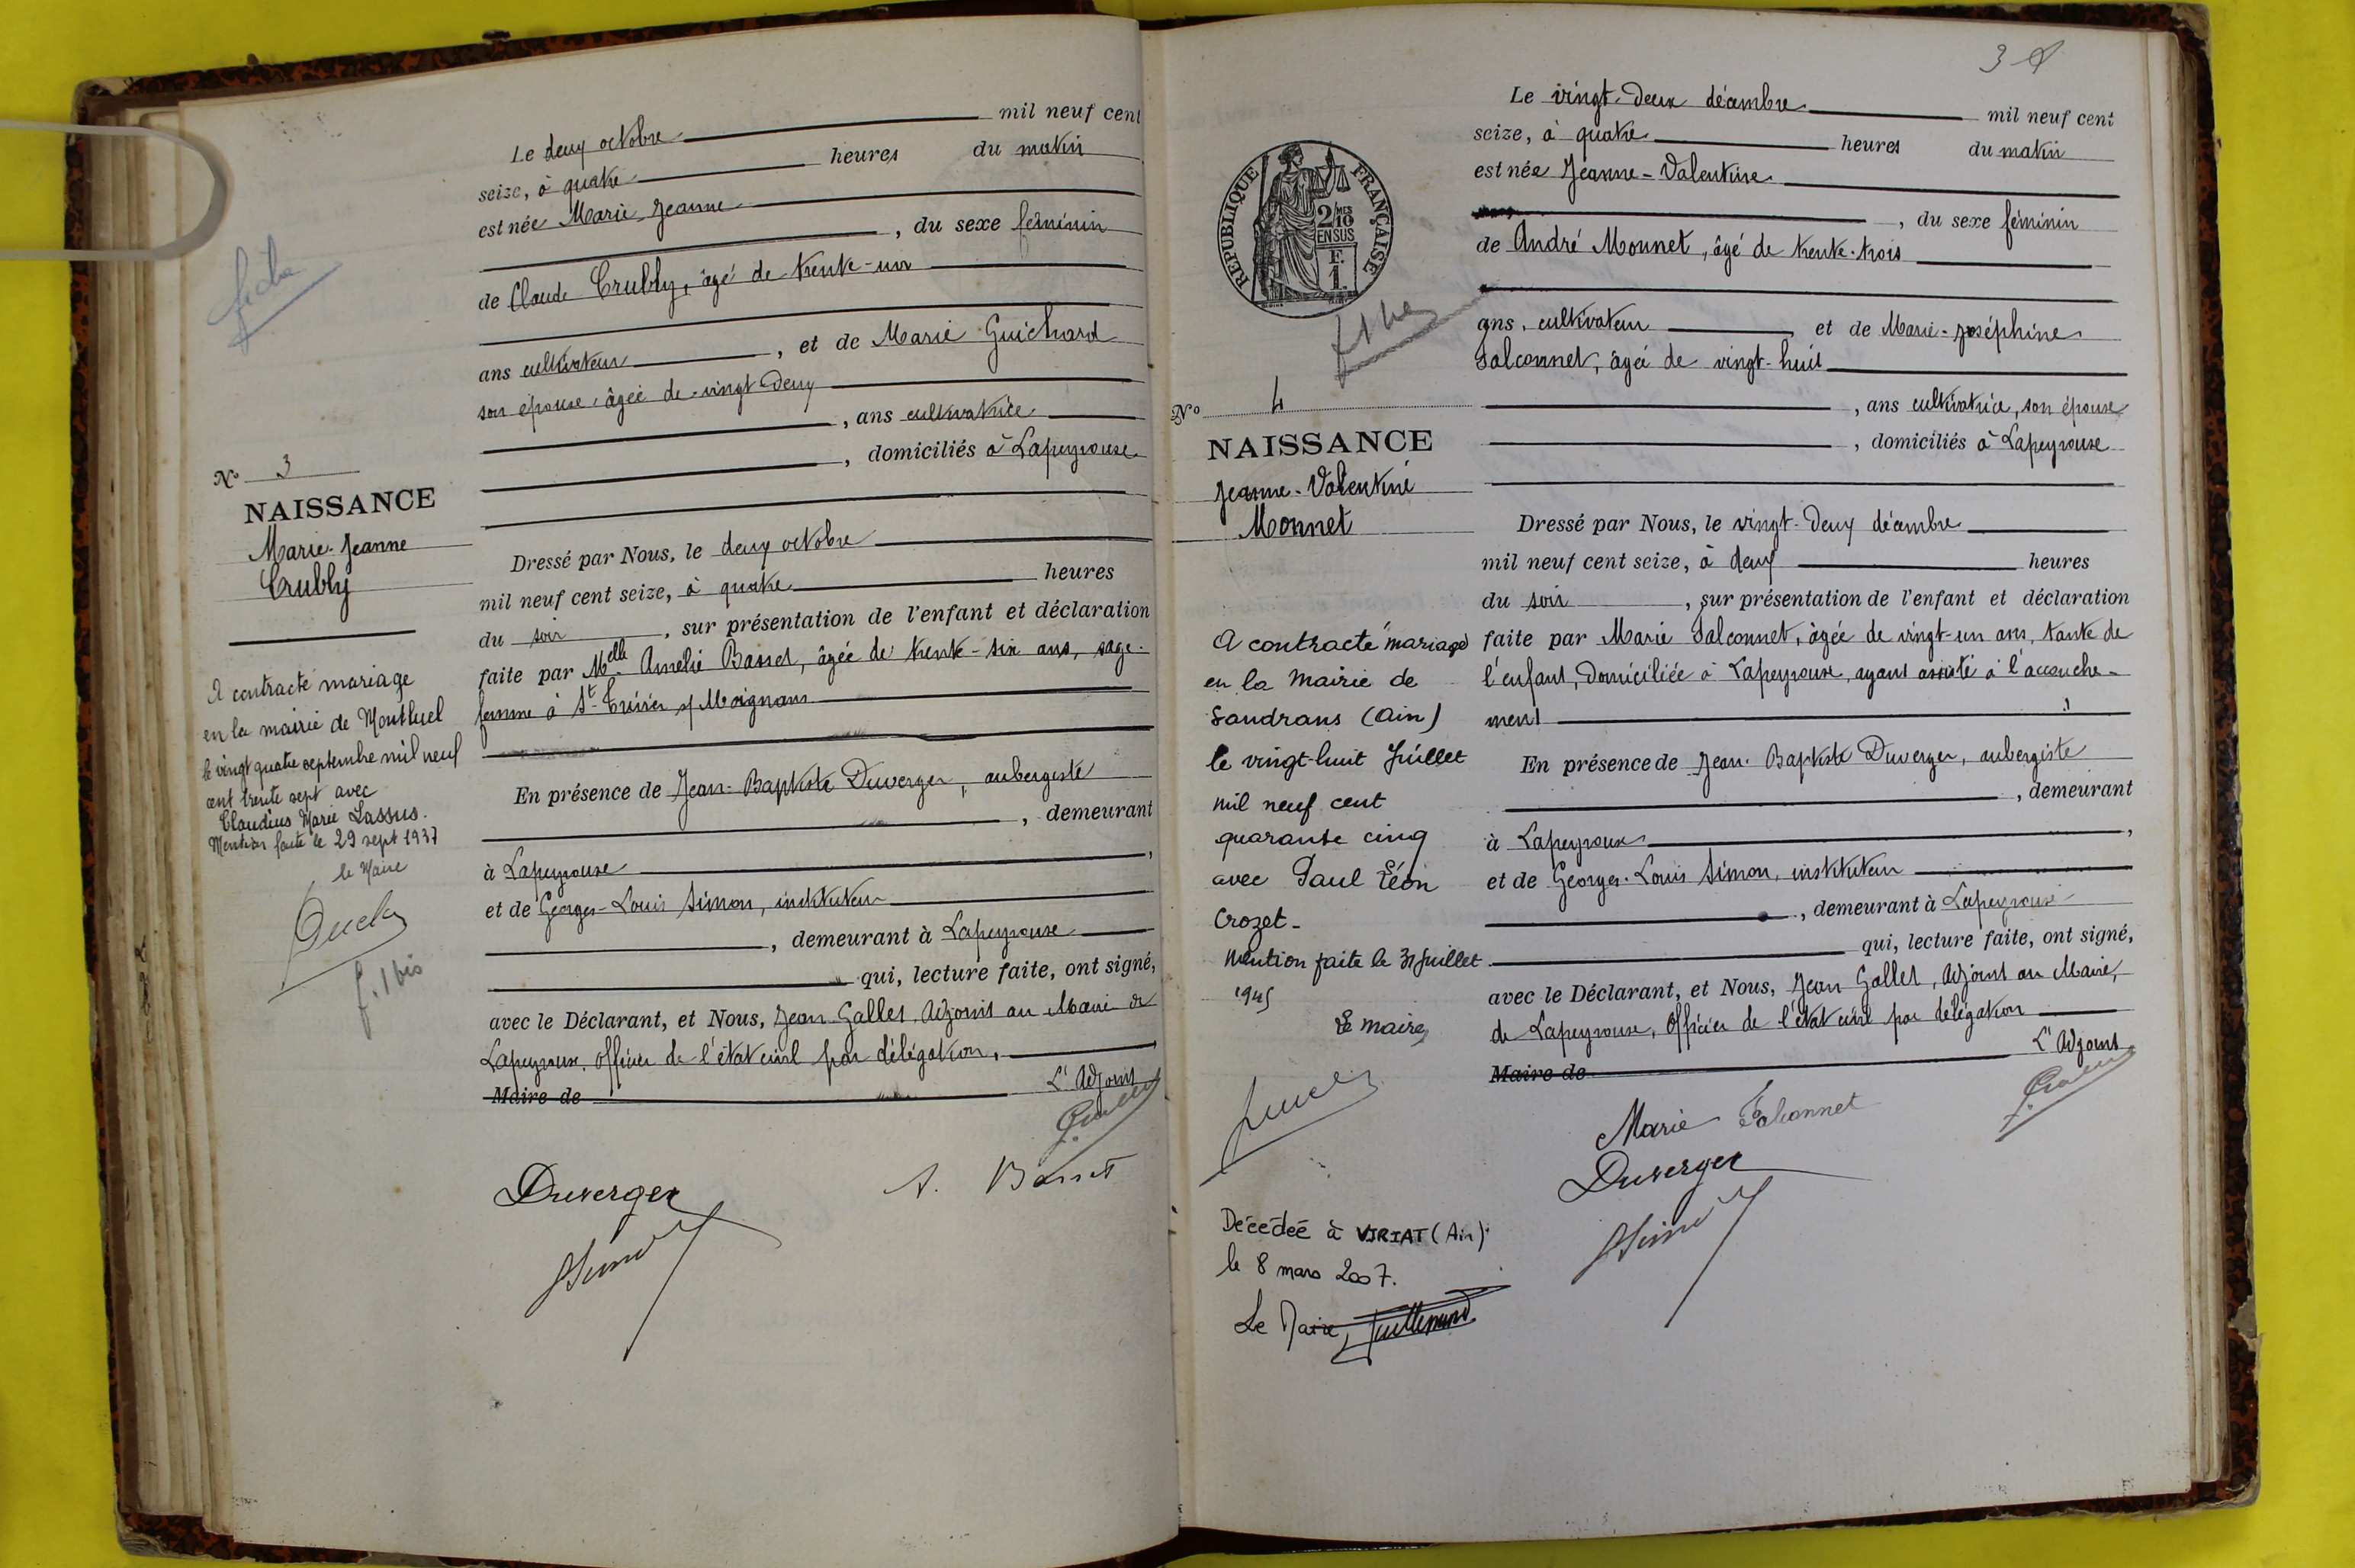 Le deux octobre mil neuf cent
seize, à quatre heures du matin
est née Marie Jeanne
, du sexe féminin
de Claude Crubly, âgé de trente-un
ans cultivateur , et de Marie Guichard
son épouse, âgée de vingt deux
, ans cultivatrice
, domiciliés à Lapeyrouse
No 3
NAISSANCE
Marie-Jeanne
Crubly
Dressé par Nous, le deux octobre
mil neuf cent seize, à quatre heures
du soir , sur présentation de l'enfant et déclaration
faite par Melle Amélie Basset, âgée de trente-six ans, sage-
femme à St-Trivier s/ Moignans
En présence de Jean-Baptiste Duverger, aubergiste
, demeurant
à Lapeyrouse ,
et de Georges-Louis Simon, instituteur
, demeurant à Lapeyrouse
qui, lecture faite, ont signé,
avec le Déclarant, et Nous, Jean Gallet, Adjoint au Maire de
Lapeyrouse, Officier de l'état civil par délégation,
Maire de L'Adjoint
A. Basset
Duverger
Simon
A contracté mariage
en la mairie de Montluel
le vingt quatre septembre mil neuf
cent trente sept avec
Claudius Marie Lassus.
Mention faite le 29 sept 1937
le Maire
f. 1 bis
3
REPUBLIQUE FRANÇAISE
2/10 MES
EN SUS
F.
1.
No 4
NAISSANCE
Jeanne-Valentine
Monnet
Le vingt-deux décembre mil neuf cent
seize, à quatre heures du matin
est née Jeanne-Valentine
, du sexe féminin
de André Monnet, âgé de trente-trois
ans, cultivateur et de Marie-Joséphine
Falconnet, âgée de vingt-huit
, ans cultivatrice, son épouse
, domiciliés à Lapeyrouse
Dressé par Nous, le vingt-deux décembre
mil neuf cent seize, à deux heures
du soir , sur présentation de l'enfant et déclaration
faite par Marie Falconnet, âgée de vingt-un ans, tante de
l'enfant, domiciliée à Lapeyrouse, ayant assisté à l'accouche-
ment
En présence de Jean-Baptiste Duverger, aubergiste
, demeurant
à Lapeyrouse ,
et de Georges-Louis Simon, instituteur
, demeurant à Lapeyrouse
qui, lecture faite, ont signé,
avec le Déclarant, et Nous, Jean Gallet, Adjoint au Maire,
de Lapeyrouse, Officier de l'état civil par délégation
Maire de L'Adjoint
Marie Falconnet
Duverger
Simon
A contracté mariage
en la Mairie de
Sandrans (Ain)
le vingt-huit Juillet
mil neuf cent
quarante cinq
avec Paul Léon
Crozet-
Mention faite le 31 Juillet
1945
Le maire
Décédée à VIRIAT (Ain)
le 8 mars 2007.
Le Maire,